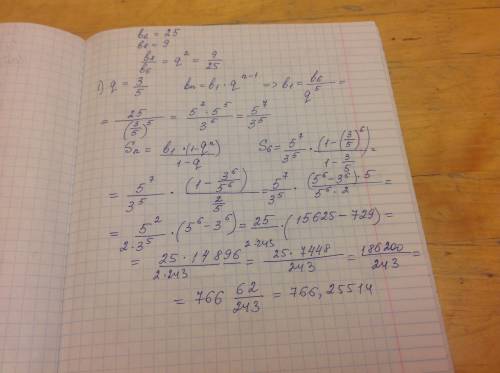 b₆ = 25
b₈ = 9
b₈/b₆ = q² = 9/25
1) q = 3/5 bₙ = b₁ · qⁿ⁻¹ => b₁ = b₆/q⁵ =
= 25/(3/5)⁵ = 5² · 5⁵/3⁵ = 5⁷/3⁵
Sₙ = b₁ · (1-qⁿ)/1-q S₆ = 5⁷/3⁵ · (1-(3/5)⁶)/1-3/5 =
= 5⁷/3⁵ · (1 - 3⁶/5⁶)/2/5 = 5⁷/3⁵ · (5⁶-3⁶) · 5/5⁶ · 2 =
= 5²/2 · 3⁵ · (5⁶ - 3⁶) = 25/2·243 · (15625 - 729) =
= 25 · 14896/2 · 243 = 25 · 7448/243 = 186200/243 =
= 766 62/243 = 766,25514